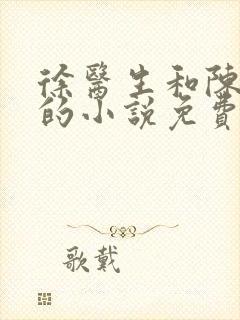 徐醫生和陳
的小說免費
歌戴